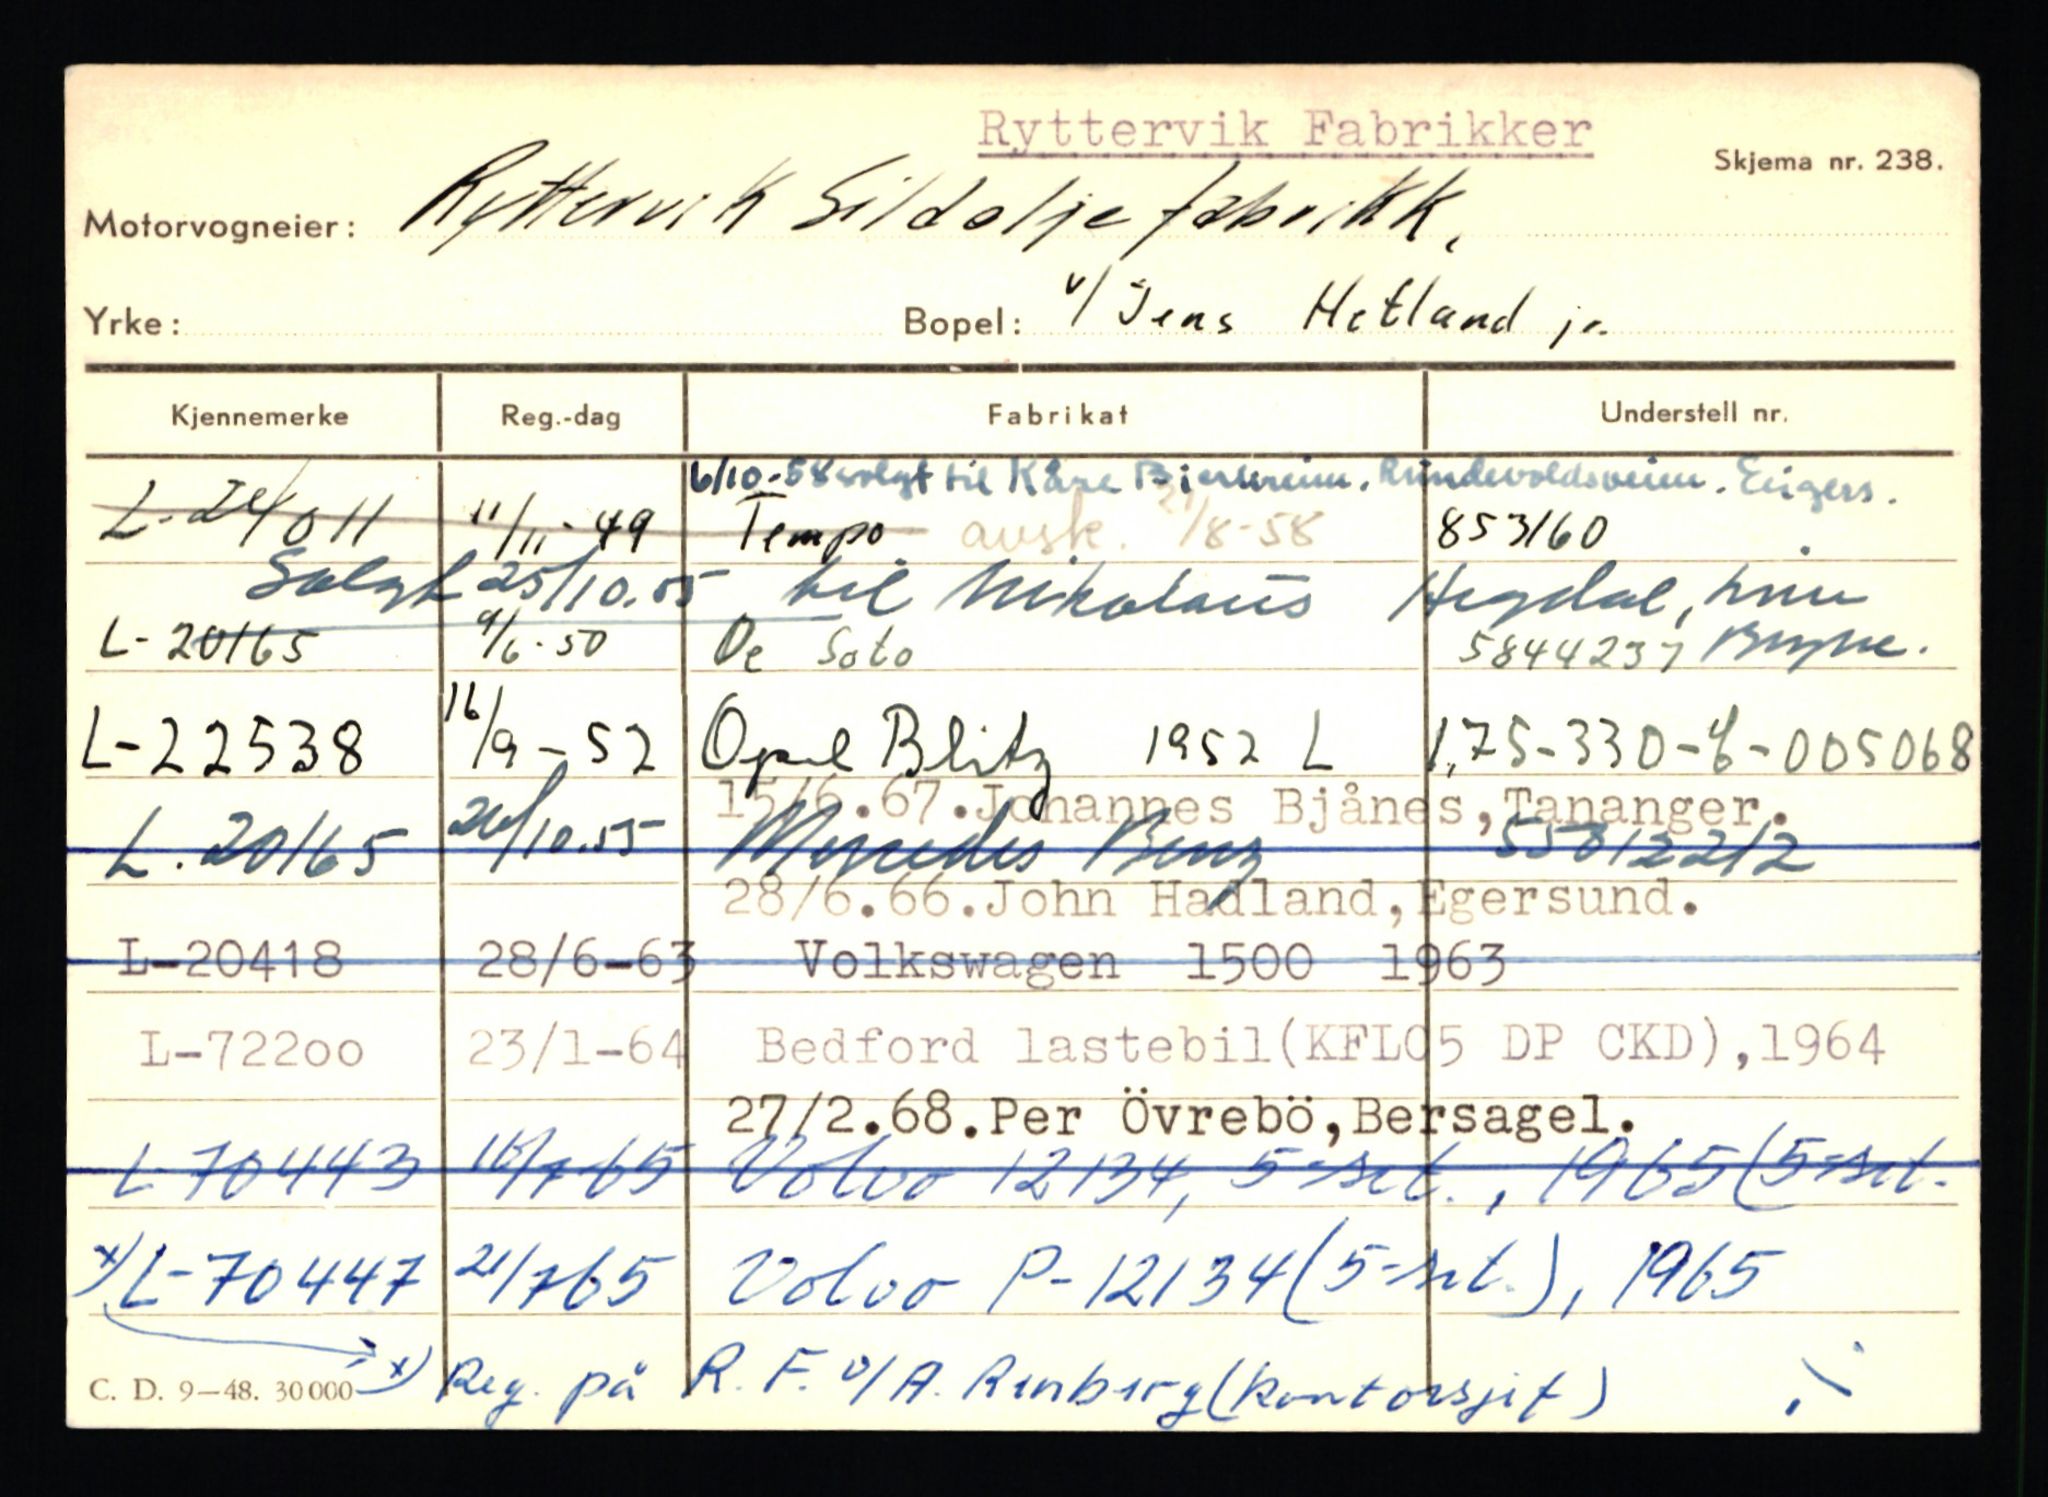 Ryttervik Fabrikker
Skjema nr. 238.
Motorvogneier: Ryttervik Sildoljefabrikk,
Yrke: Bopel: v/ Jens Hetland jr.
Kjennemerke Reg.-dag Fabrikat Understell nr.
6/10-58 solgt til Kåre Bjerkreim. Rundevoldsveien. Eigers.
L-24011 11/11-49 Tempo avsk. 21/8-58 853160
Solgt 25/10.55 til Nikolaus Hegdal, Lime
L-20165 9/6-50 De Soto 5844237 Bryne.
L-22538 16/9-52 Opel Blitz 1952 L 1,75-330-4-005068
15/6.67.Johannes Bjånes,Tananger.
L.20165 26/10.55 Mercedes Benz 55012212
28/6.66.John Hadland,Egersund.
L-20418 28/6-63 Volkswagen 1500 1963
L-72200 23/1-64 Bedford lastebil(KFLC5 DP CKD),1964
27/2.68.Per Övrebö,Bersagel.
L-70443 16/7-65 Volvo 12134, 5-set., 1965 (5-set.
x) L-70447 21/765 Volvo P-12134 (5-set.), 1965
C. D. 9—48. 30 000 x) Reg. på R. F. v/ A. Renberg (kontorsjef)